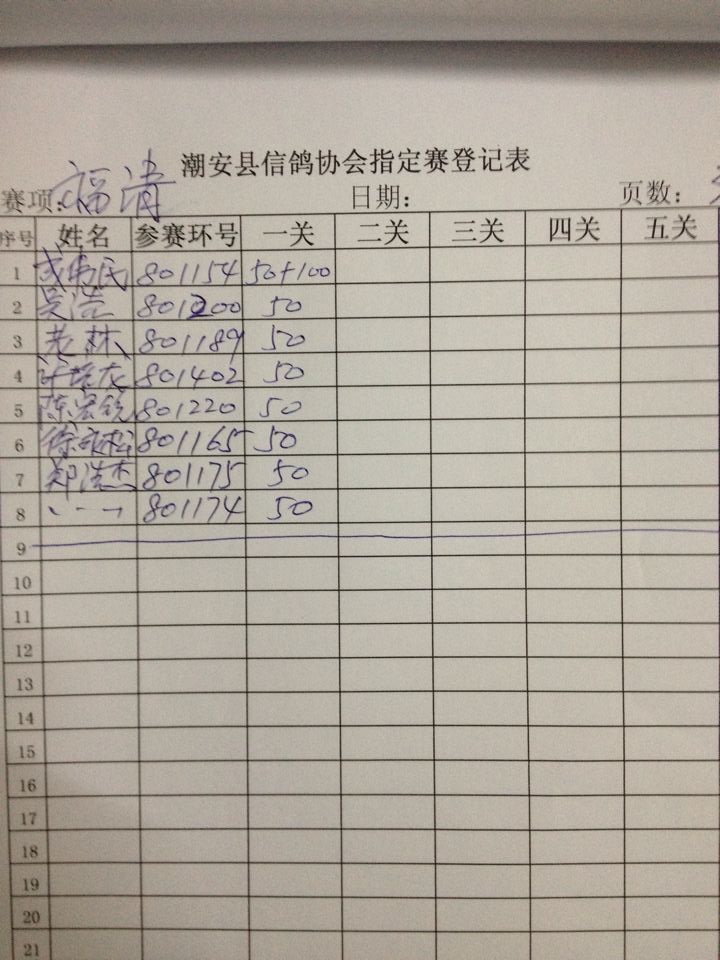 潮安县信鸽协会指定赛登记表
赛项:福清 日期: 页数:
序号 姓名 参赛环号 一关 二关 三关 四关 五关
1 801154 50+100
2 吴浩 801200 50
3 老林 801189 50
4 801402 50
5 陈宏锐 801220 50
6 徐永松 801165 50
7 郑浩杰 801175 50
8 801174 50
9
10
11
12
13
14
15
16
17
18
19
20
21